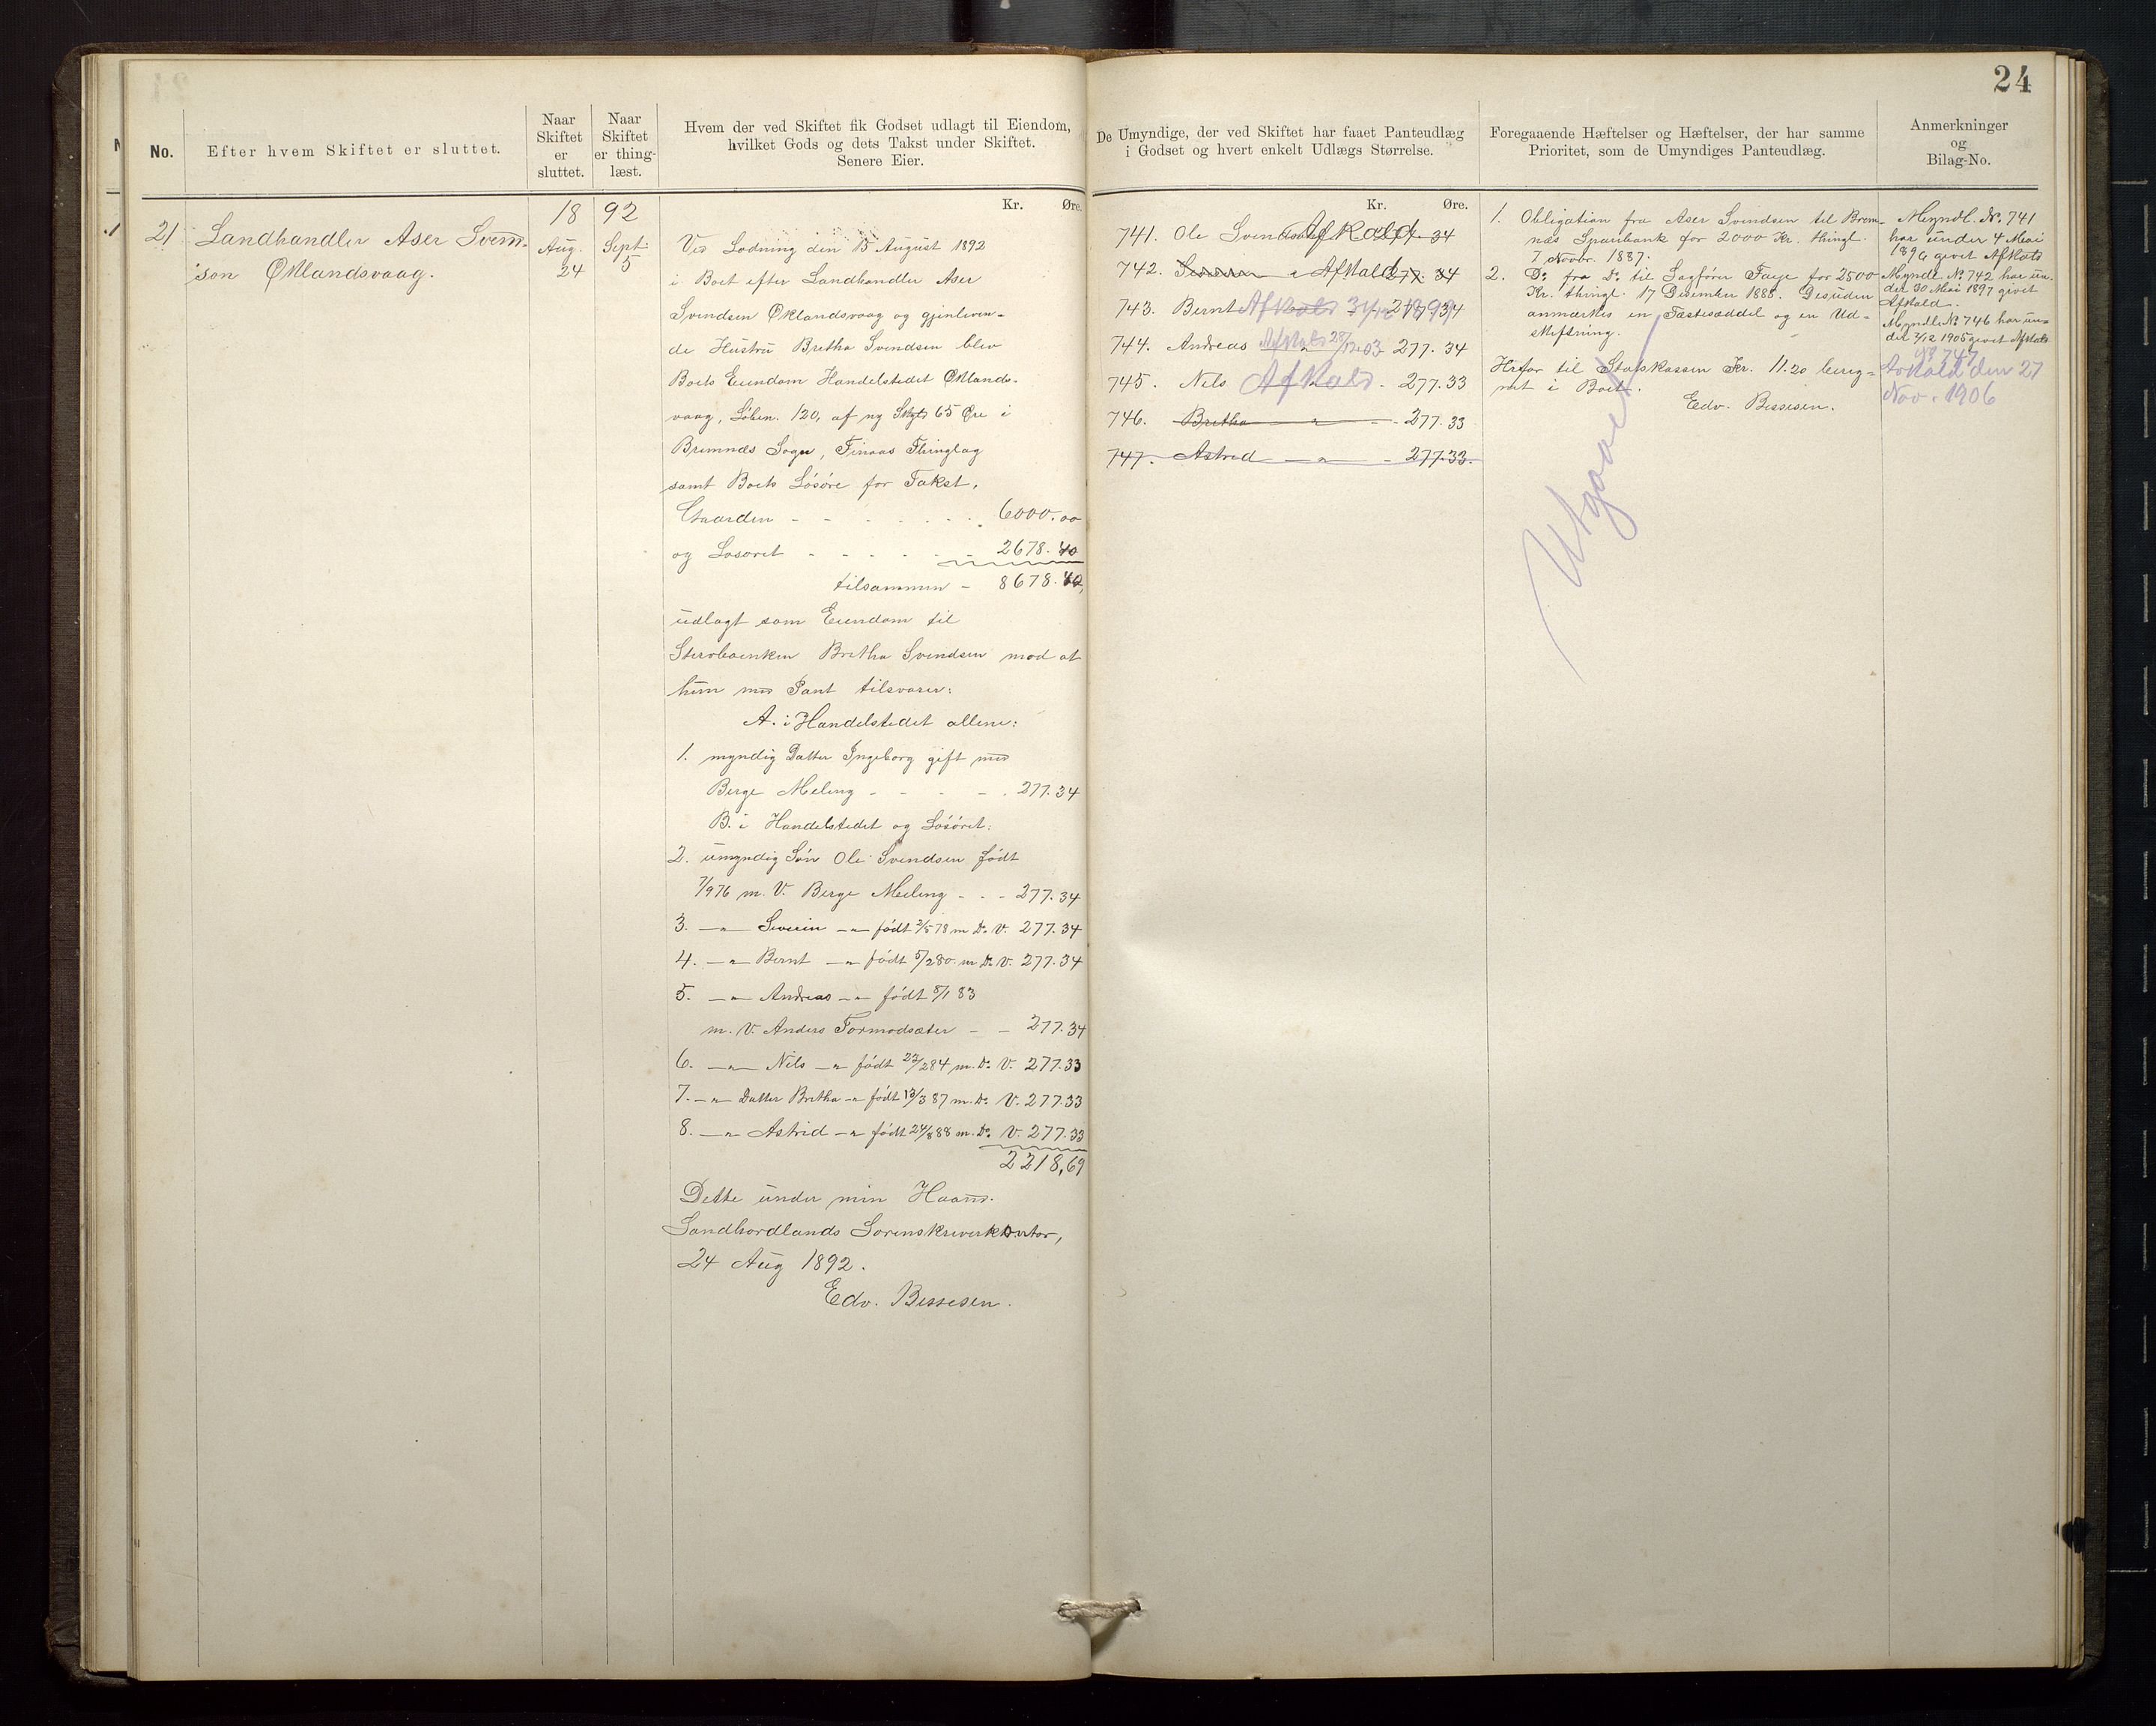 24
No.
Efter hvem Skiftet er sluttet.
Naar
Skiftet
er
sluttet.
Naar
Skiftet
er thing-
læst.
Hvem der ved Skiftet fik Godset udlagt til Eiendom,
hvilket Gods og dets Takst under Skiftet.
Senere Eier.
De Umyndige, der ved Skiftet har faaet Panteudlæg
i Godset og hvert enkelt Udlægs Størrelse.
Foregaaende Hæftelser og Hæftelser, der har samme
Prioritet, som de Umyndiges Panteudlæg.
Anmerkninger
og
Bilag-No.
21
Landhandler Aser Svend-
sen Øklandsvaag.
18 92
Aug. Sept.
24 5
Kr. Øre.
Ved Lodning den 15 August 1892
i Boet efter Landhandler Aser
Svendsen Øklandsvaag og gjenleven-
de Hustru Bretha Svendsen blev
Boets Eiendom Handelstedet Øklands-
vaag, Løben. 120, af ny Skyld 65 Øre i
Bremnæs Sogn, Finaas Thinglag
samt Boets Løsøre for Takst,
Gaarden - - - - - - 6000.00
og Løsøret - - - - - 2678.40
tilsammen - 8678.40,
udlagt som Eiendom til
Sterboenken Bretha Svendsen mod at
hun med Pant tilsvarer:
A. i Handelstedet allene:
1. myndig Datter Ingeborg gift med
Berge Meling - - - - 277.34
B. i Handelstedet og Løsøret:
2. umyndig Søn Ole Svendsen født
7/976 m. V. Berge Meling - - - 277.34
3. —"— Severin —"— født 2/578 m Do V. 277.34
4. —"— Bernt —"— født 5/280. m. Do V. 277.34
5. —"— Andreas —"— født 8/1 83
m. V. Anders Tormodsæter - - 277.34
6. —"— Nils —"— født 22/284 m. Do V. 277.33
7. —"— Datter Bretha —"— født 13/387 m. Do V. 277.33
8. —"— Astrid —"— født 24/888 m. Do V. 277.33
2218,69
Dette under min Haand.
Søndhordlands Sorenskriverkontor,
24 Aug 1892.
Edv. Bessesen.
Kr. Øre.
741. Ole Svendsen Afkald 277. 34
742. Severin " Afkald 277. 34
743. Bernt Afkald 277.34
744. Andreas Afkald 28/12 03 277.34
745. Nils Afkald - 277.33
746. Bretha —"— - 277.33
747. Astrid —"— - 277.33.
1. Obligation fra Aser Svendsen til Brem-
næs Sparebank for 2000 Kr. thingl.
7 Novbr. 1887.
2. Do fra Do til Sagfører Faye for 2500
Kr. thingl. 17 Desember 1888. Desuden
anmærkes en Fæstesæddel og en Ud-
skiftning.
Herfor til Statskassen Kr. 11.20 bereg-
net i Boet.
Edv. Bessesen.
Utgaaet
Myndl. No. 741
har under 4 Mai
1896 givet Afkald
Myndl. No 742 har un-
der 30 Mai 1897 givet
Afkald.
Myndl No 746 har un-
der 2/12 1905 givet Afkald
No 747
Afkald den 27
Nov. 1906